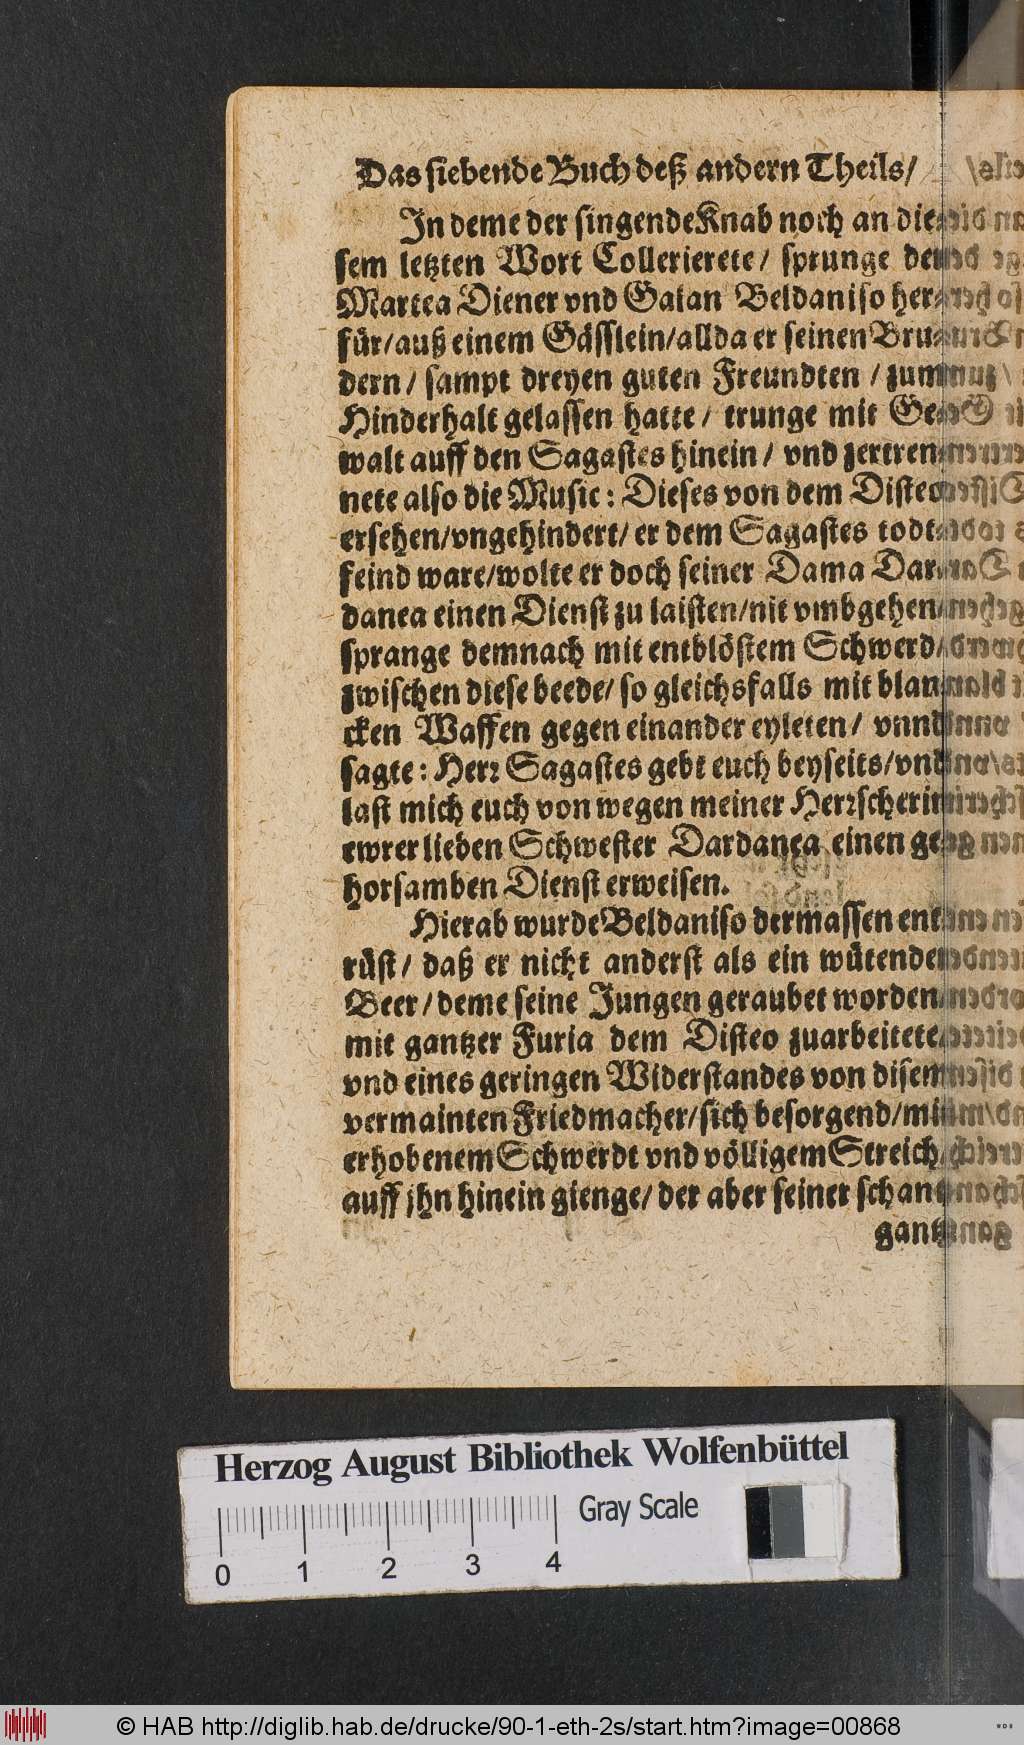 Das siebende Buch deß andern Theils/
In deme der singende Knab noch an die-
sem letzten Wort Collerierete/ sprunge der
Martea Diener vnd Galan Beldaniso her-
für/auß einem Gässlein/allda er seinen Bru-
dern/ sampt dreyen guten Freundten /zum
Hinderhalt gelassen hatte/ trunge mit Ge-
walt auff den Sagastes hinein/ vnd zertren-
nete also die Music: Dieses von dem Disteo
ersehen/vngehindert/ er dem Sagastes todt-
feind ware/wolte er doch seiner Dama Dar-
danea einen Dienst zu laisten/nit vmbgehen/
sprange demnach mit entblöstem Schwerd/
zwischen diese beede/ so gleichsfalls mit blan-
cken Waffen gegen einander eyleten/ vnnd
sagte: Herr Sagastes gebt euch beyseits/vnd
last mich euch von wegen meiner Herrscherin
ewrer lieben Schwester Dardanea einen ge-
horsamben Dienst erweisen.
Hierab wurde Beldaniso dermassen ent-
rüst/ daß er nicht anderst als ein wütender
Beer/deme seine Jungen geraubet worden/
mit gantzer Furia dem Disteo zuarbeitete/
vnd eines geringen Widerstandes von disem
vermainten Friedmacher/sich besorgend/mit
erhobenem Schwerdt vnd völligem Streich
auff jhn hinein gienge/ der aber seiner schantz
gantz
Herzog August Bibliothek Wolfenbüttel
Gray Scale
0 1 2 3 4
© HAB http://diglib.hab.de/drucke/90-1-eth-2s/start.htm?image=00868